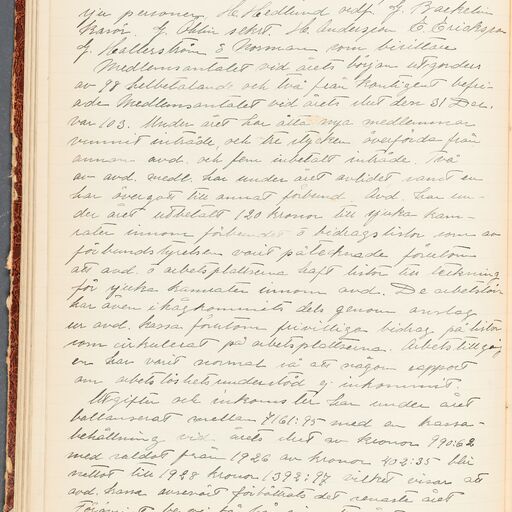 sju personer, H. Hedlund ordf. G. Backelin
kasör, G. Ohlin sekret. H. Anderzon E. Erickson
G. Hallerström E Norman som bisittare
Medlemsantalet vid årets början utgjordes
av 98 helbetalande och två från kontigent befri-
ade Medlemsantalet vid årets slut den 31 Dec.
var 103. Under året har åtta nya medlemmar
vunnit inträde, och tre stycken överförda från
annan avd. och fem inbetalt inträde. Två
av avd. medl. har under året avlidet samt en
har övergått till annat förbund. Avd. har un-
der året utbetalt 120 kronor till sjuka kam-
rater inom förbundet å bidragslistor som av
förbundstyrelsen varit påtecknade förutom
att avd. å arbetsplattserna haft listor till teckning
för sjuka kamrater innom avd. De arbetslösa
har även ihågkommits dels genom anslag
ur avd. kassa förutom frivilliga bidrag på listor
som cirkulerat på arbetsplattserna. Arbetstillgång
en har varit normal så att någon rapport
om arbetslöshetsunderstöd ej inkommit.
Utgifter och inkomster har under året
ballanserat mellan 7161:95 med en kassa-
behållning vid årets slut av kronor 990:62
med saldot från 1926 av kronor 402:35 blir
nettot till 1928 kronor 1392:97 vilket visar att
avd. kassa avsevärt förbättrats det senaste året